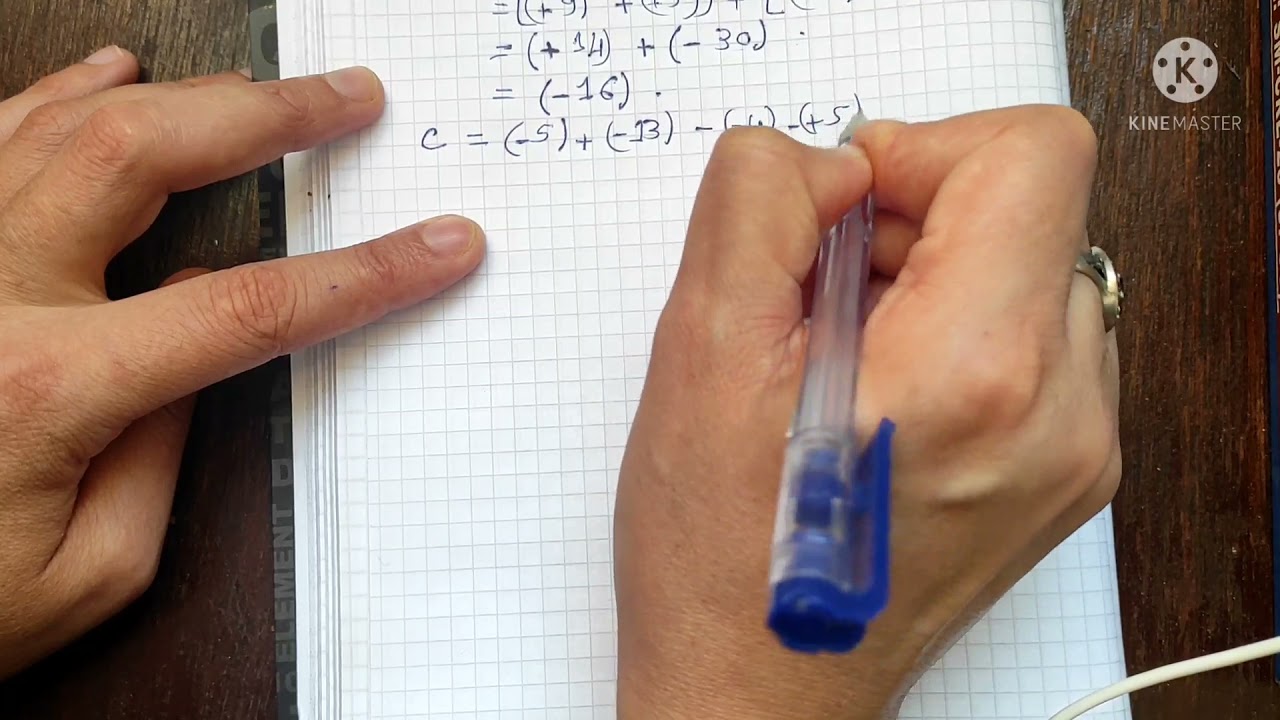 = [(+9) + (+5)] + [(
= (+14) + (-30) .
= (-16) .
C = (-5) + (-13) - (-4) - (+5)
K
KINEMASTER
ELEMENT